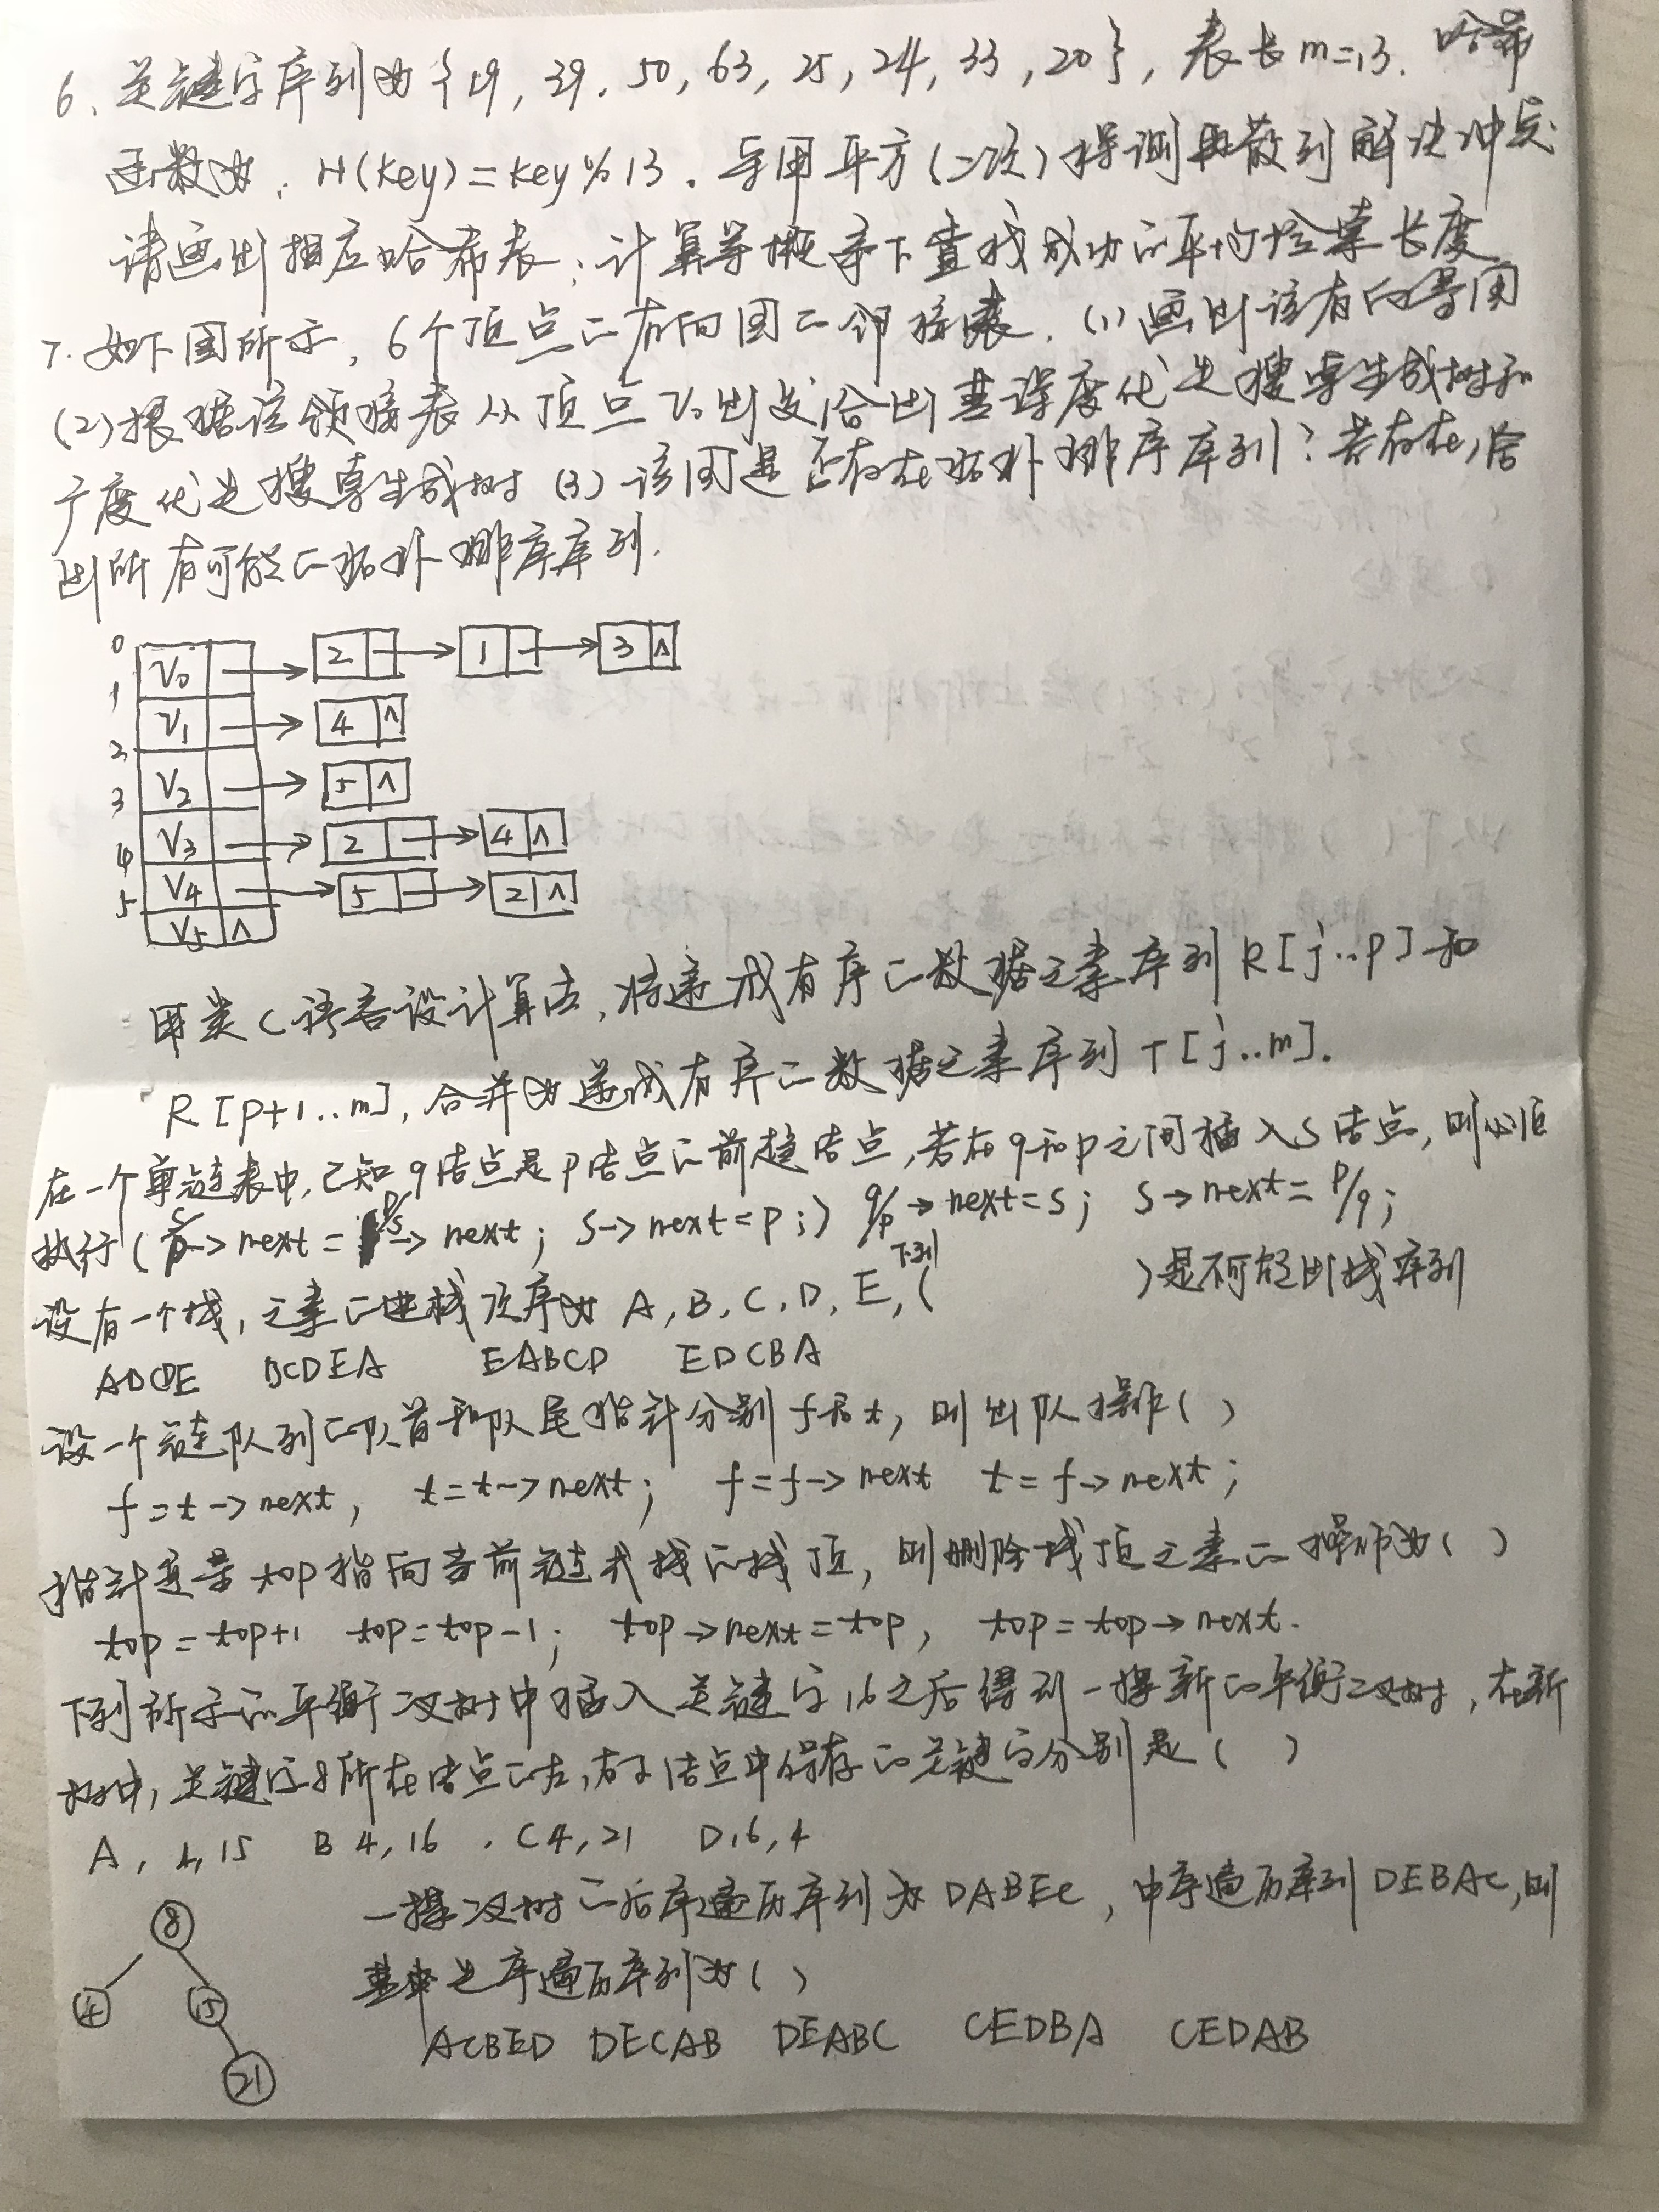 6、关键字序列为{19, 39, 50, 63, 25, 24, 33, 20}, 表长m=13. 哈希
函数为: H(key)=key%13. 采用平方(二次)探测再散列解决冲突
请画出相应哈希表; 计算等概率下查找成功的平均检索长度
7. 如下图所示, 6个顶点的有向图的邻接表. (1)画出该有向图
(2)根据该领接表从顶点V0出发给出其深度优先搜索生成树和
广度优先搜索生成树 (3) 该图是否存在拓扑排序序列? 若存在,给
出所有可能的拓扑排序序列.
0 V0 → 2 → 1 → 3 ∧
1 V1 → 4 ∧
2 V2 → 5 ∧
3 V3 → 2 → 4 ∧
4 V4 → 5 → 2 ∧
5 V5 ∧
用类C语言设计算法, 将递减有序的数据元素序列R[j..p]和
R[p+1..m], 合并为递减有序的数据元素序列T[j..m].
在一个单链表中, 已知q结点是p结点的前趋结点, 若在q和p之间插入S结点, 则必须
执行(s/p→next=p/s→next; s→next=p;) q/p→next=s; s→next=p/q;
设有一个栈, 元素的进栈次序为A, B, C, D, E, 下列( )是不可能出栈序列
ABCDE BCDEA EABCD EDCBA
设一个链队列的队首和队尾指针分别f和t, 则出队操作( )
f=t→next, t=t→next; f=f→next t=f→next;
指针变量top指向当前链式栈的栈顶, 则删除栈顶元素的操作为( )
top=top+1 top=top-1; top→next=top, top=top→next.
下列所示的平衡二叉树中插入关键字16之后得到一棵新的平衡二叉树, 在新
树中, 关键字8所在结点的左,右子结点中保存的关键字分别是( )
A, 4,15 B 4,16 . C 4,21 D 16,4
一棵二叉树的后序遍历序列为DABEC, 中序遍历序列DEBAC,则
其先序遍历序列为( )
ACBED DECAB DEABC CEDBA CEDAB
8
4 15
21